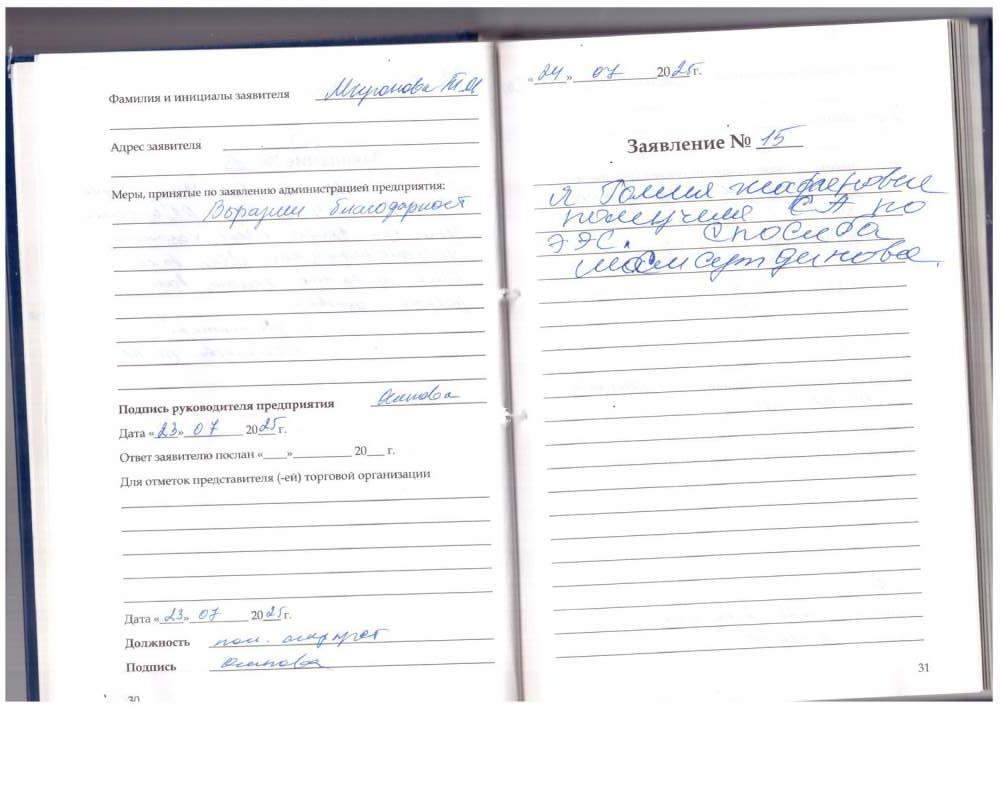 Фамилия и инициалы заявителя
Адрес заявителя
Меры, принятые по заявлению администрацией предприятия:
Выразили благодарност
Подпись руководителя предприятия
Дата «23» 07 2025 г.
Ответ заявителю послан «___» ________ 20__ г.
Для отметок представителя (-ей) торговой организации
Дата «23» 07 2025 г.
Должность
Подпись
30
«24» 07 2025 г.
Заявление № 15
Я
СА по
ЭЭС. Спосиба
31